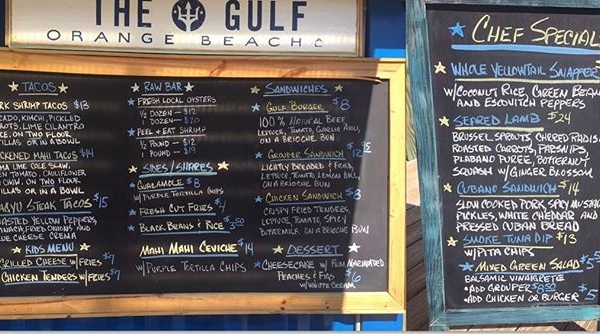 THE GULF
ORANGE BEACH
TACOS
RK SHRIMP TACOS $13
CADO, KIMCHI, PICKLED
ROTS, LIME CILANTRO
CE, ON TWO FLOUR
ILLAS OR IN A BOWL
CKENED MAHI TACOS $14
MA LIME COLE SLAW,
EN TOMATO, CAULIFLOWER
CHOW, ON TWO FLOUR
ILLAS OR IN A BOWL
STEAK TACOS $15
ASTED YELLOW PEPPERS,
FRIED ONIONS AND
UE CHEESE CREMA
KIDS MENU
GRILLED CHEESE W/FRIES $7
CHICKEN TENDERS W/FRIES $7
RAW BAR
FRESH LOCAL OYSTERS
1/2 DOZEN - $12
1 DOZEN - $20
PEEL + EAT SHRIMP
1/2 POUND - $12
1 POUND - $19
SIDES/SHARES
$8
W/PURPLE TORTILLA CHIPS
FRESH CUT FRIES $4
BLACK BEANS & RICE $3.50
MAHI MAHI CEVICHE $14
W/PURPLE TORTILLA CHIPS
SANDWICHES
GULF BURGER $8
100% NATURAL BEEF,
LETTUCE, TOMATO, GARLIC AIOLI,
ON A BRIOCHE BUN
GROUPER SANDWICH $12
LIGHTLY BREADED & FRIED,
LETTUCE, TOMATO, LEMON AIOLI,
ON A BRIOCHE BUN
CHICKEN SANDWICH $8
CRISPY FRIED TENDERS,
LETTUCE, TOMATO, SPICY
BUTTERMILK, ON A BRIOCHE BUN
DESSERT
CHEESECAKE W/RUM MARINATED
PEACHES & FIGS $6
W/WHIPPED CREAM
CHEF SPECIAL
WHOLE YELLOWTAIL SNAPPER
W/COCONUT RICE, GREEN BEANS
AND ESCOVITCH PEPPERS
SEARED LAMB $24
BRUSSEL SPROUTS, CHERRED RADISH
ROASTED CARROTS, PARSNIPS,
PLABANO PUREE, BUTTERNUT
SQUASH W/GINGER BLOSSOM
CUBANO SANDWICH $14
SLOW COOKED PORK, SPICY MUSTARD
PICKLES, WHITE CHEDDAR AND
PRESSED CUBAN BREAD
SMOKE TUNA DIP $13
W/PITA CHIPS
MIXED GREEN SALAD
BALSAMIC VINAIGRETTE
•ADD GROUPER $8.50
•ADD CHICKEN OR BURGER $5